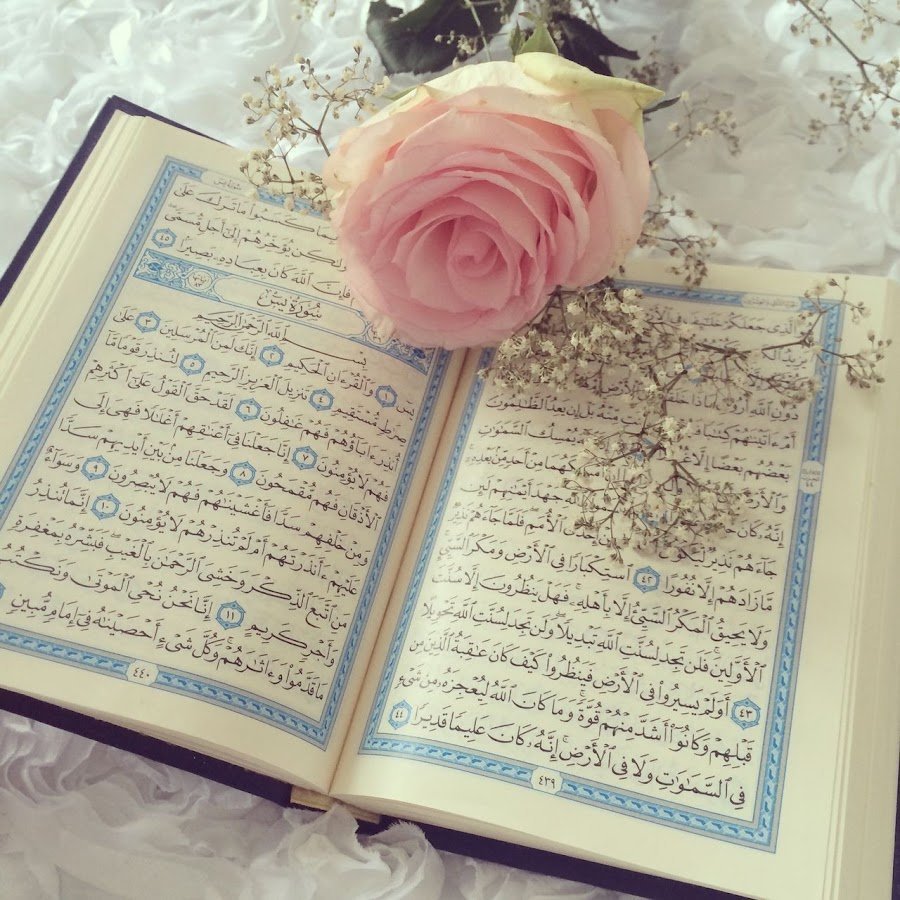 ٱلَّذِى جَعَلَكُمْ خَلَٰٓئِفَ فِى
يَزِيدُ
دُونِ ٱللَّهِ أَرُونِى مَاذَا
أَمْ ءَاتَيْنَٰهُمْ كِتَٰبًا مِّنْهُ بَلْ إِن يَعِدُ ٱلظَّٰلِمُونَ
بَعْضُهُم بَعْضًا إِلَّا يُمْسِكُ ٱلسَّمَٰوَٰتِ
وَٱلْأَرْضَ مِنْ أَحَدٍ مِّنۢ بَعْدِهِۦٓ
إِنَّهُۥ كَانَ جَهْدَ أَيْمَٰنِهِمْ لَئِن
جَآءَهُمْ نَذِيرٌ ٱلْأُمَمِ فَلَمَّا جَآءَهُمْ نَذِيرٌ
مَّا زَادَهُمْ إِلَّا نُفُورًا ٤٢ ٱسْتِكْبَارًا فِى ٱلْأَرْضِ وَمَكْرَ ٱلسَّيِّئِ
وَلَا يَحِيقُ ٱلْمَكْرُ ٱلسَّيِّئُ إِلَّا بِأَهْلِهِۦ ۚ فَهَلْ يَنظُرُونَ إِلَّا سُنَّتَ
ٱلْأَوَّلِينَ ۚ فَلَن تَجِدَ لِسُنَّتِ ٱللَّهِ تَبْدِيلًا ۖ وَلَن تَجِدَ لِسُنَّتِ ٱللَّهِ تَحْوِيلًا
٤٣ أَوَلَمْ يَسِيرُوا۟ فِى ٱلْأَرْضِ فَيَنظُرُوا۟ كَيْفَ كَانَ عَٰقِبَةُ ٱلَّذِينَ مِن
قَبْلِهِمْ وَكَانُوٓا۟ أَشَدَّ مِنْهُمْ قُوَّةً ۚ وَمَا كَانَ ٱللَّهُ لِيُعْجِزَهُۥ مِن شَىْءٍ
فِى ٱلسَّمَٰوَٰتِ وَلَا فِى ٱلْأَرْضِ ۚ إِنَّهُۥ كَانَ عَلِيمًا قَدِيرًا ٤٤
٤٣٩
بِمَا كَسَبُوا۟ مَا تَرَكَ عَلَىٰ
وَلَٰكِن يُؤَخِّرُهُمْ إِلَىٰٓ أَجَلٍ مُّسَمًّى ۖ
فَإِنَّ ٱللَّهَ كَانَ بِعِبَادِهِۦ بَصِيرًۢا ٤٥
سُورَةُ يسٓ
بِسْمِ ٱللَّهِ ٱلرَّحْمَٰنِ ٱلرَّحِيمِ
يسٓ ١ وَٱلْقُرْءَانِ ٱلْحَكِيمِ ٢ إِنَّكَ لَمِنَ ٱلْمُرْسَلِينَ ٣ عَلَىٰ
صِرَٰطٍ مُّسْتَقِيمٍ ٤ تَنزِيلَ ٱلْعَزِيزِ ٱلرَّحِيمِ ٥ لِتُنذِرَ قَوْمًا مَّآ
أُنذِرَ ءَابَآؤُهُمْ فَهُمْ غَٰفِلُونَ ٦ لَقَدْ حَقَّ ٱلْقَوْلُ عَلَىٰٓ أَكْثَرِهِمْ
فَهُمْ لَا يُؤْمِنُونَ ٧ إِنَّا جَعَلْنَا فِىٓ أَعْنَٰقِهِمْ أَغْلَٰلًا فَهِىَ إِلَى
ٱلْأَذْقَانِ فَهُم مُّقْمَحُونَ ٨ وَجَعَلْنَا مِنۢ بَيْنِ أَيْدِيهِمْ سَدًّا
وَمِنْ خَلْفِهِمْ سَدًّا فَأَغْشَيْنَٰهُمْ فَهُمْ لَا يُبْصِرُونَ ٩ وَسَوَآءٌ
عَلَيْهِمْ ءَأَنذَرْتَهُمْ أَمْ لَمْ تُنذِرْهُمْ لَا يُؤْمِنُونَ ١٠ إِنَّمَا تُنذِرُ
مَنِ ٱتَّبَعَ ٱلذِّكْرَ وَخَشِىَ ٱلرَّحْمَٰنَ بِٱلْغَيْبِ ۖ فَبَشِّرْهُ بِمَغْفِرَةٍ
وَأَجْرٍ كَرِيمٍ ١١ إِنَّا نَحْنُ نُحْىِ ٱلْمَوْتَىٰ وَنَكْتُبُ
مَا قَدَّمُوا۟ وَءَاثَٰرَهُمْ ۚ وَكُلَّ شَىْءٍ أَحْصَيْنَٰهُ فِىٓ إِمَامٍ مُّبِينٍ
٤٤٠